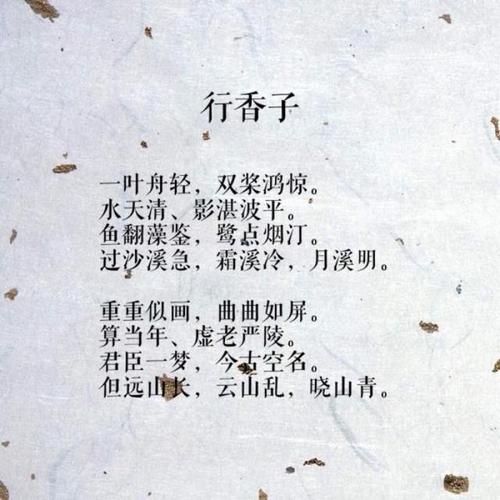 行香子
一叶舟轻，双桨鸿惊。
水天清、影湛波平。
鱼翻藻鉴，鹭点烟汀。
过沙溪急，霜溪冷，月溪明。
重重似画，曲曲如屏。
算当年、虚老严陵。
君臣一梦，今古空名。
但远山长，云山乱，晓山青。